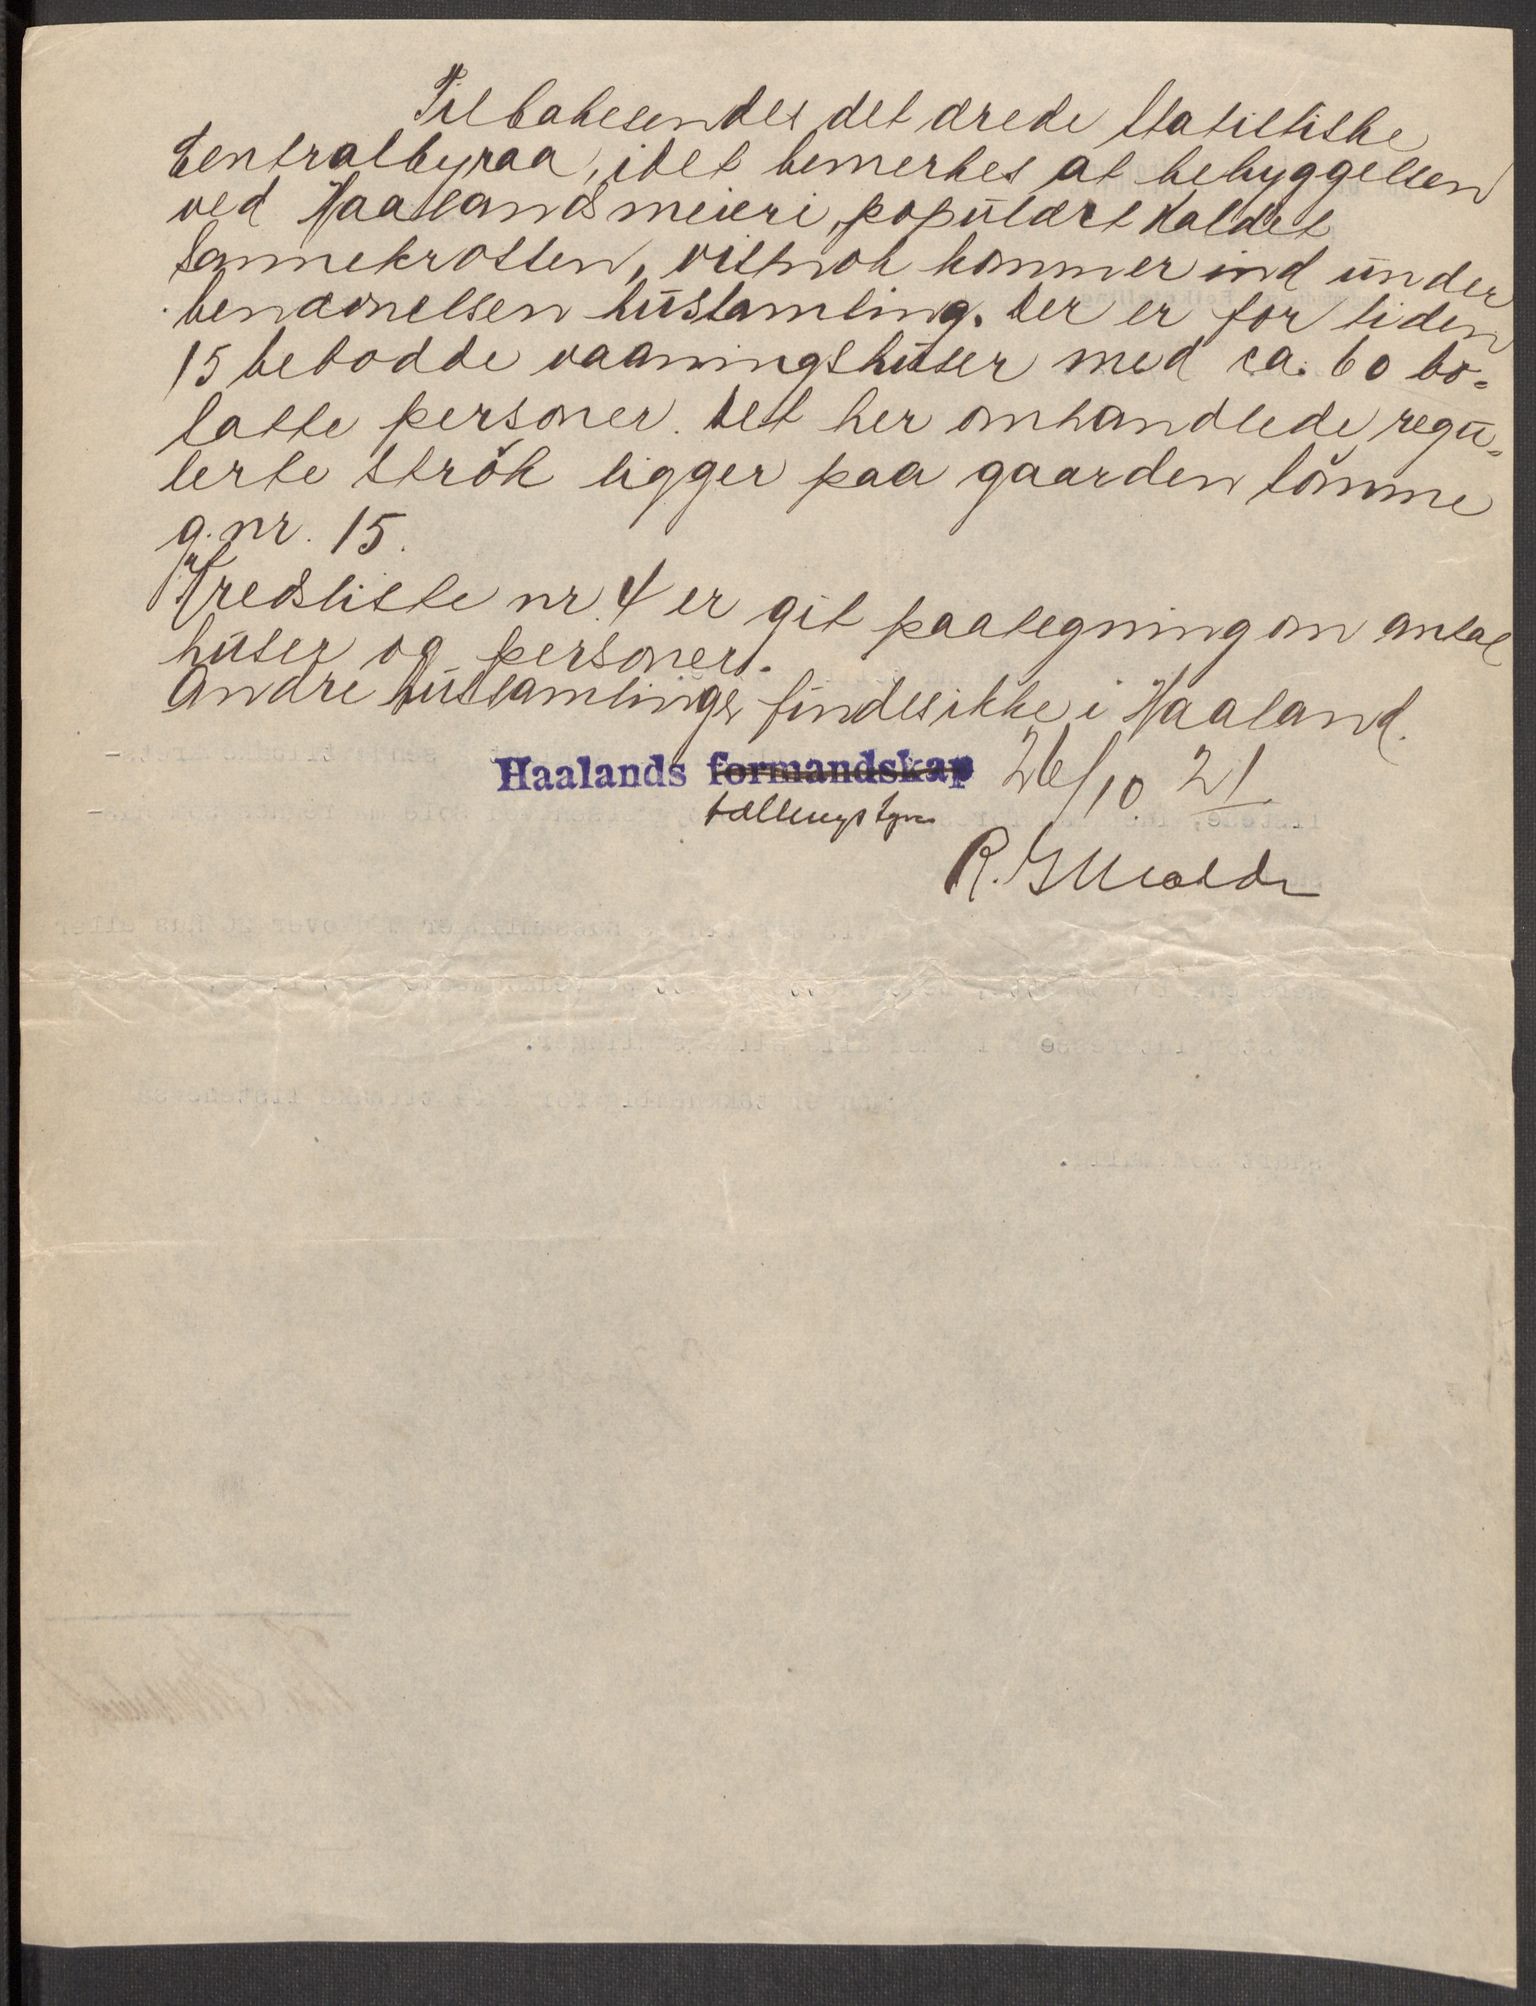 Tilbakesendes det ærede Statistiske
Centralbyraa, idet bemerkes at bebyggelsen
ved Haalands meieri, populært kaldet
Sømmekrossen, vistnok kommer ind under
benævnelsen hussamling. Der er for tiden
15 bebodde vaaningshuser med ca. 60 bo-
satte personer. Det her omhandlede regu-
lerte strök ligger paa gaarden Sömme
g.nr. 15.
Kredsliste nr. 4 er git paategning om antal
huser og personer.
Andre hussamlinger findes ikke i Haaland.
Haalands formandskap 26/10 21
tællingstyre
R.